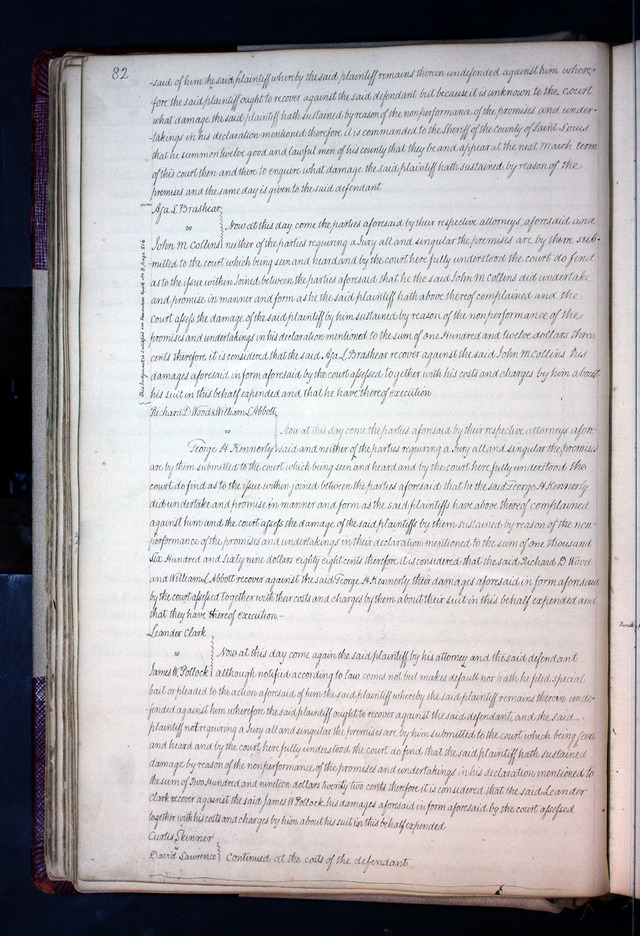 82
said of him the said plaintiff whereby the said plaintiff remains therein undefended against him where-
fore the said plaintiff ought to recover against the said defendant but because it is unknown to the court
what damage the said plaintiff hath sustained by reason of the nonperformance of the promises and under-
takings in his declaration mentioned therefore it is commanded to the Sheriff of the county of Saint Louis
that he summon twelve good and lawful men of his county that they be and appear at the next March term
of this court then and there to enquire what damage the said plaintiff hath sustained by reason of the
promises and the same day is given to the said defendant
Asa L Brashear
vs Now at this day come the parties aforesaid by their respective attorneys, aforesaid and
John M Collins neither of the parties requiring a Jury all and singular the premises are by them sub-
mitted to the court which being seen and heard and by the court here fully understood the court do find
as to the issue within joined between the parties aforesaid that he the said John M Collins did undertake
and promise in manner and form as he the said plaintiff hath above thereof complained and the
court assess the damage of the said plaintiff by him sustained by reason of the nonperformance of the
promises and undertakings in his declaration mentioned to the sum of one Hundred and twelve dollars three
cents therefore it is considered that the said Asa L Brashear recover against the said John M Collins his
damages aforesaid in form aforesaid by the court assessed together with his costs and charges by him about
his suit in this behalf expended and that he have thereof execution
Richard D Wood & William L Abbott
vs Now at this day come the parties aforesaid by their respective attorneys afore-
George H Kennerly said and neither of the parties requiring a Jury all and singular the premises
are by them submitted to the court which being seen and heard and by the court here fully understood the
court do find as to the issue within joined between the parties aforesaid that he the said George H Kennerly
did undertake and promise in manner and form as the said plaintiffs have above thereof complained
against him and the court assess the damage of the said plaintiffs by them sustained by reason of the non-
performance of the promises and undertakings in their declaration mentioned to the sum of one thousand
Six Hundred and Sixty nine dollars eighty eight cents therefore it is considered that the said Richard D Wood
and William L Abbott recover against the said George H Kennerly their damages aforesaid in form aforesaid
by the court assessed together with their costs and charges by them about their suit in this behalf expended and
that they have thereof execution -
Leander Clark
vs Now at this day come again the said plaintiff by his attorney and the said defendant
James W Pollock although notified according to law comes not but makes default nor hath he filed special
bail or pleaded to the action aforesaid of him the said plaintiff whereby the said plaintiff remains therein unde-
fended against him wherefore the said plaintiff ought to recover against the said defendant, and the said
plaintiff not requiring a Jury all and singular the premises are by him submitted to the court which being seen
and heard and by the court here fully understood the court do find that the said plaintiff hath sustained
damage by reason of the nonperformance of the promises and undertakings in his declaration mentioned to
the sum of Two Hundred and nineteen dollars twenty two cents therefore it is considered that the said Leander
Clark recover against the said James W Pollock his damages aforesaid in form aforesaid by the court assessed
together with his costs and charges by him about his suit in this behalf expended
Curtis Skinner
vs
David Lawrence Continued at the costs of the defendant